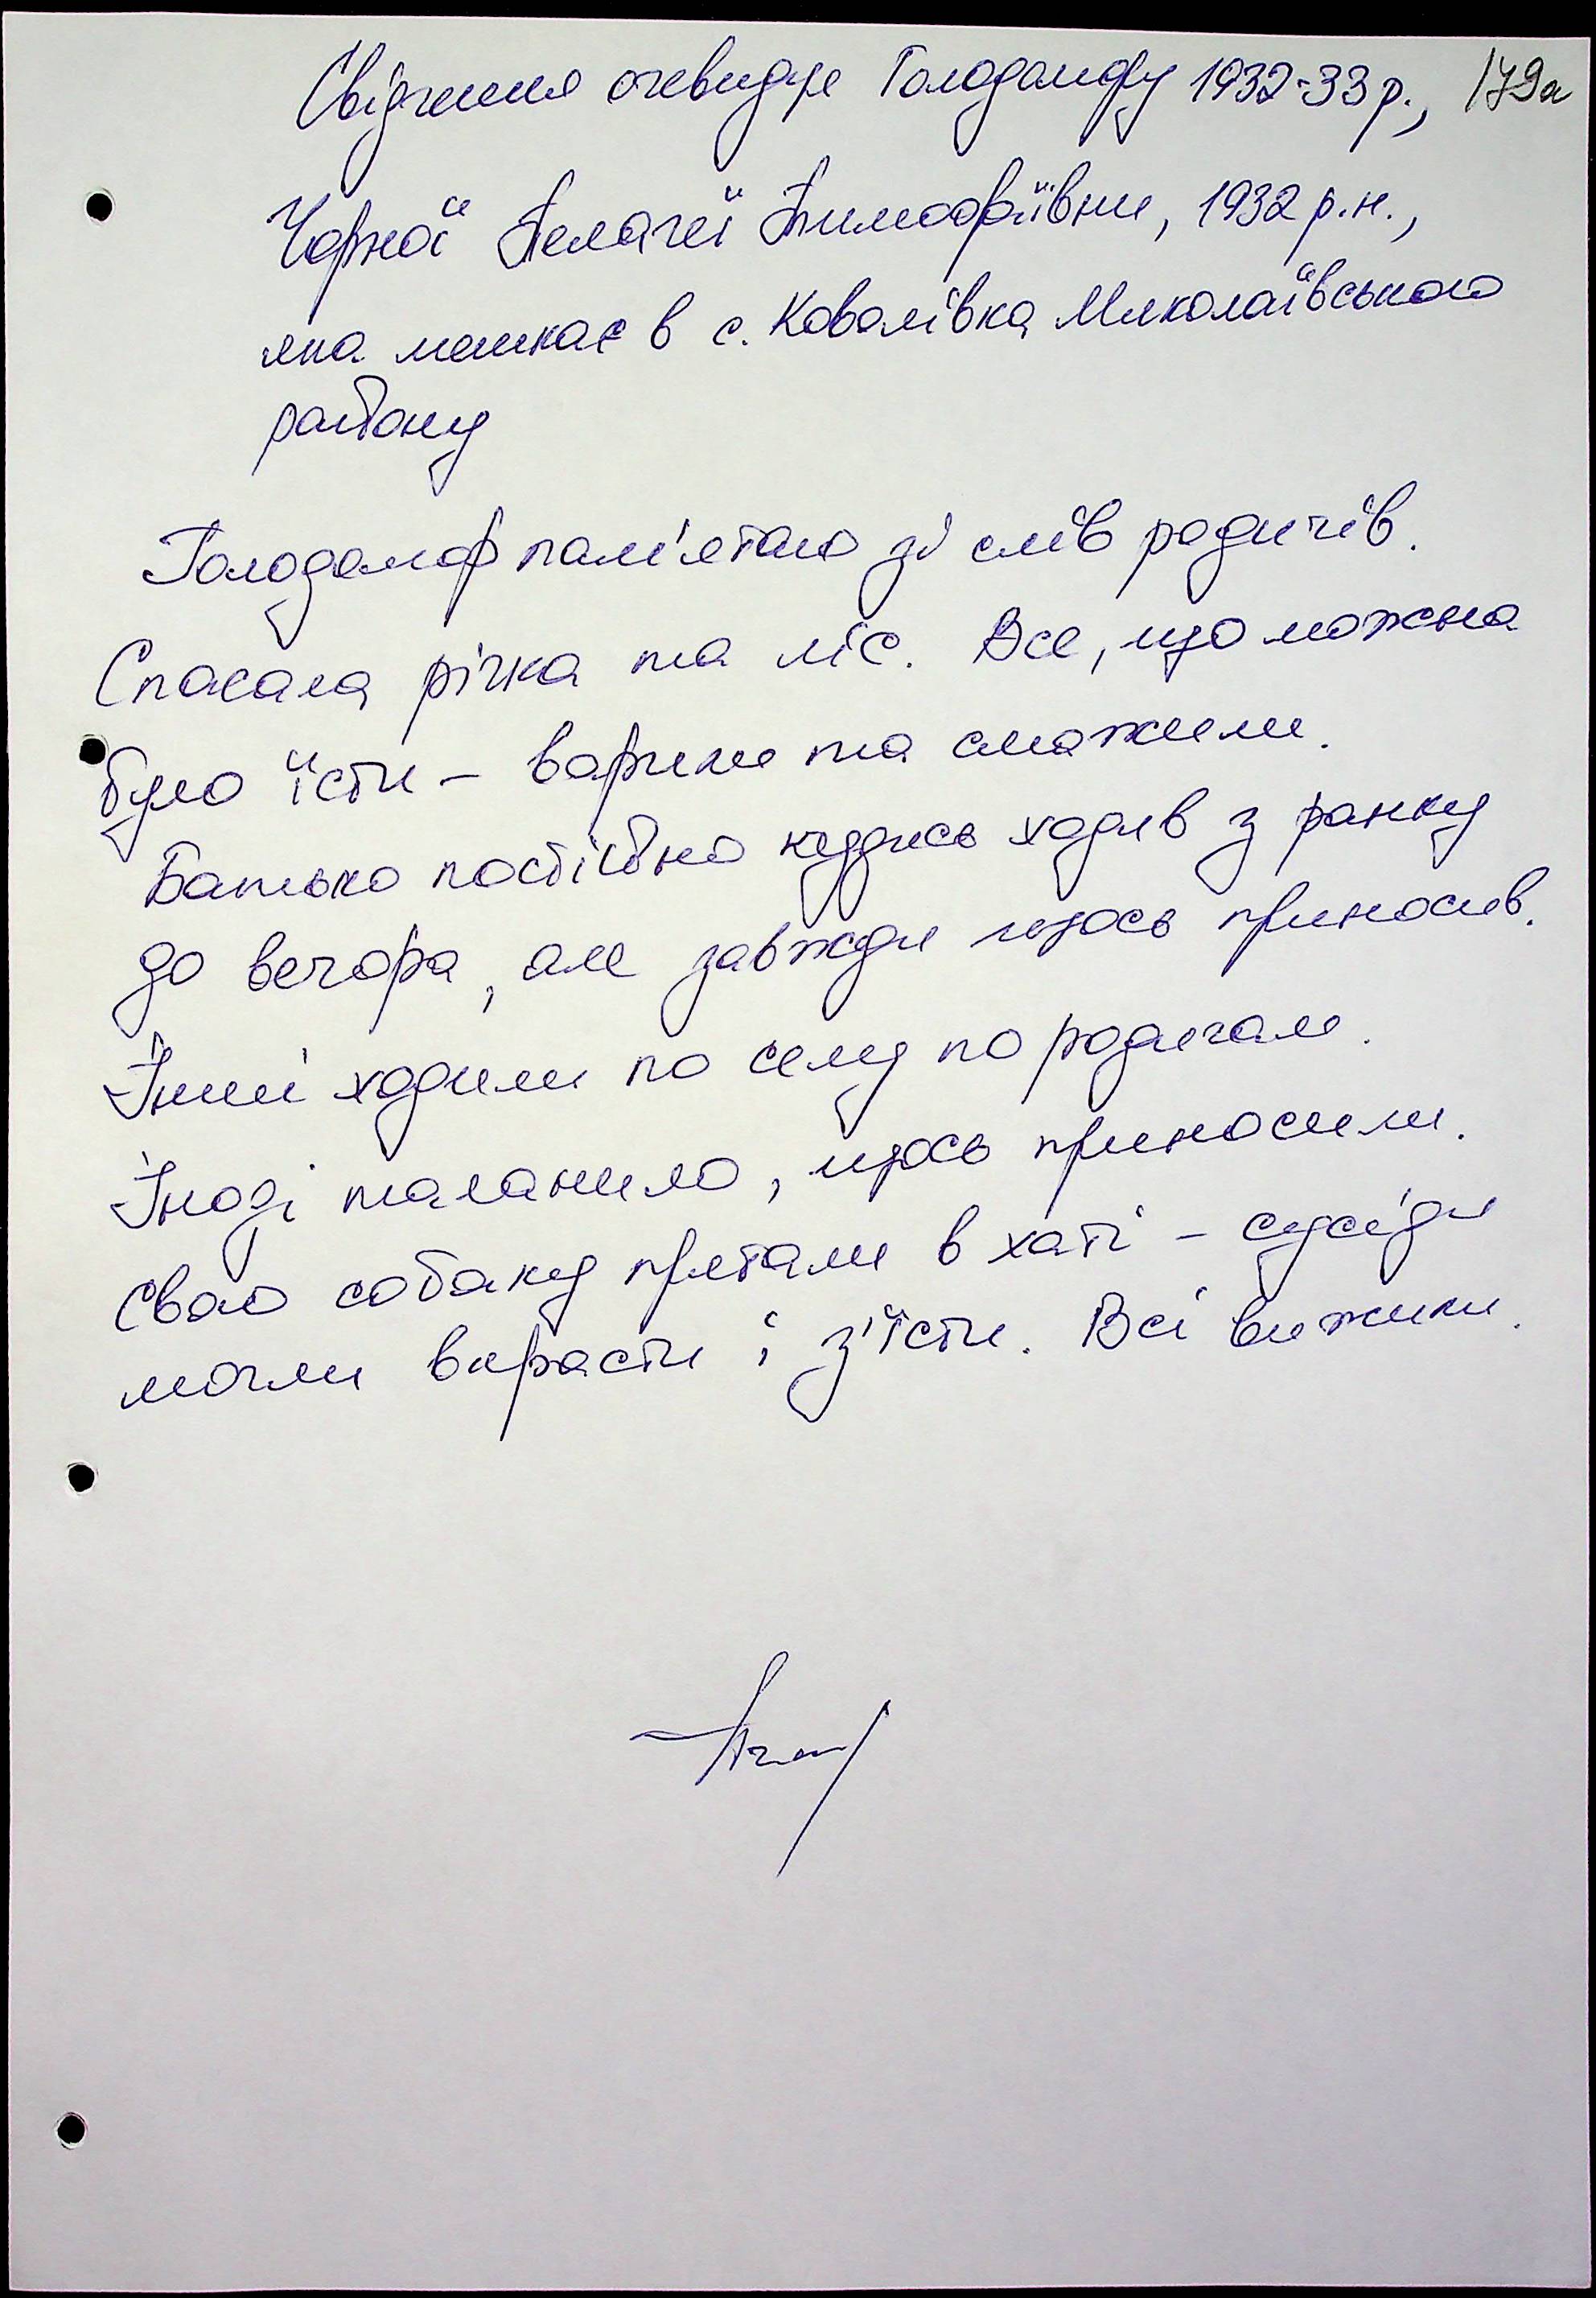 Свідчення очевидця Голодомору 1932-33 р., 179а
Чорної Пелагеї Тимофіївни, 1932 р.н.,
яка мешкає в с. Ковалівка Миколаївського
району
Голодомор пам'ятаю зі слів родичів.
Спасала річка та ліс. Все, що можна
було їсти - варили та смажили.
Батько постійно кудись ходив з ранку
до вечора, але завжди щось приносив.
Інші ходили по селу по родичам.
Іноді таланило, щось приносили.
Свою собаку прятали в хаті - сусіди
могли вкрасти і з'їсти. Всі вижили.